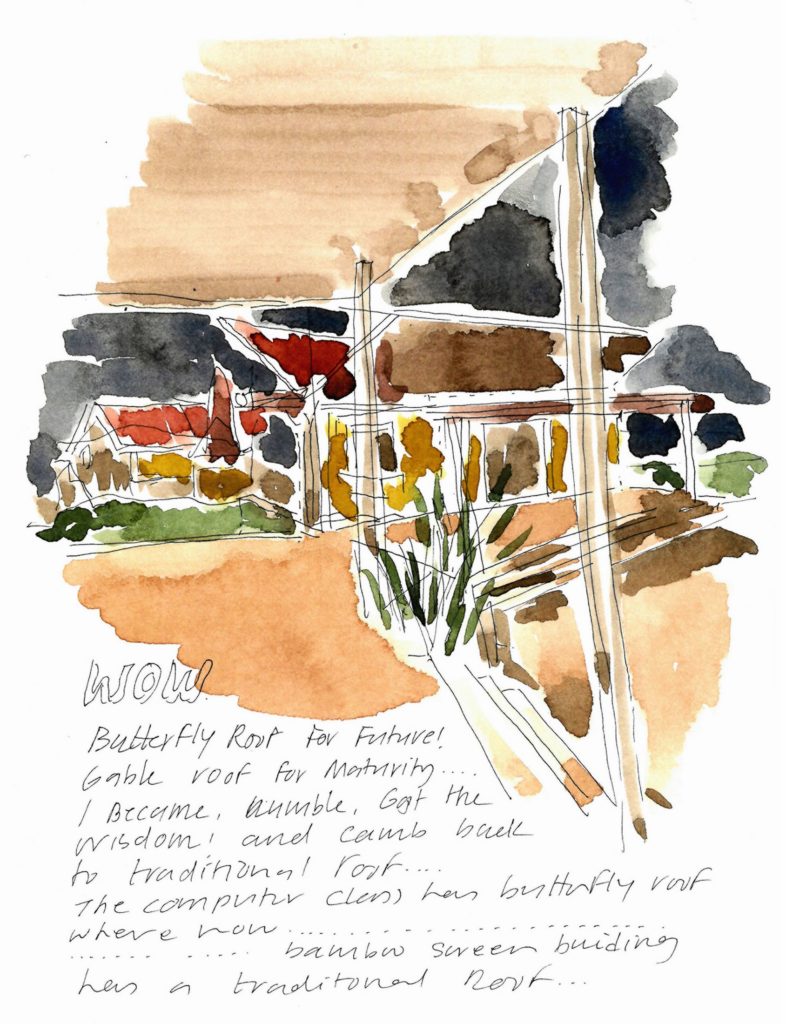 WOW
Butterfly Roof For Future!
Gable roof for Maturity....
I Became, Humble, Got the
wisdom! and camb back
to traditional roof....
The computer class has butterfly roof
where now ........................
....... ..... bamboo screen buiding
has a traditonal Roof...